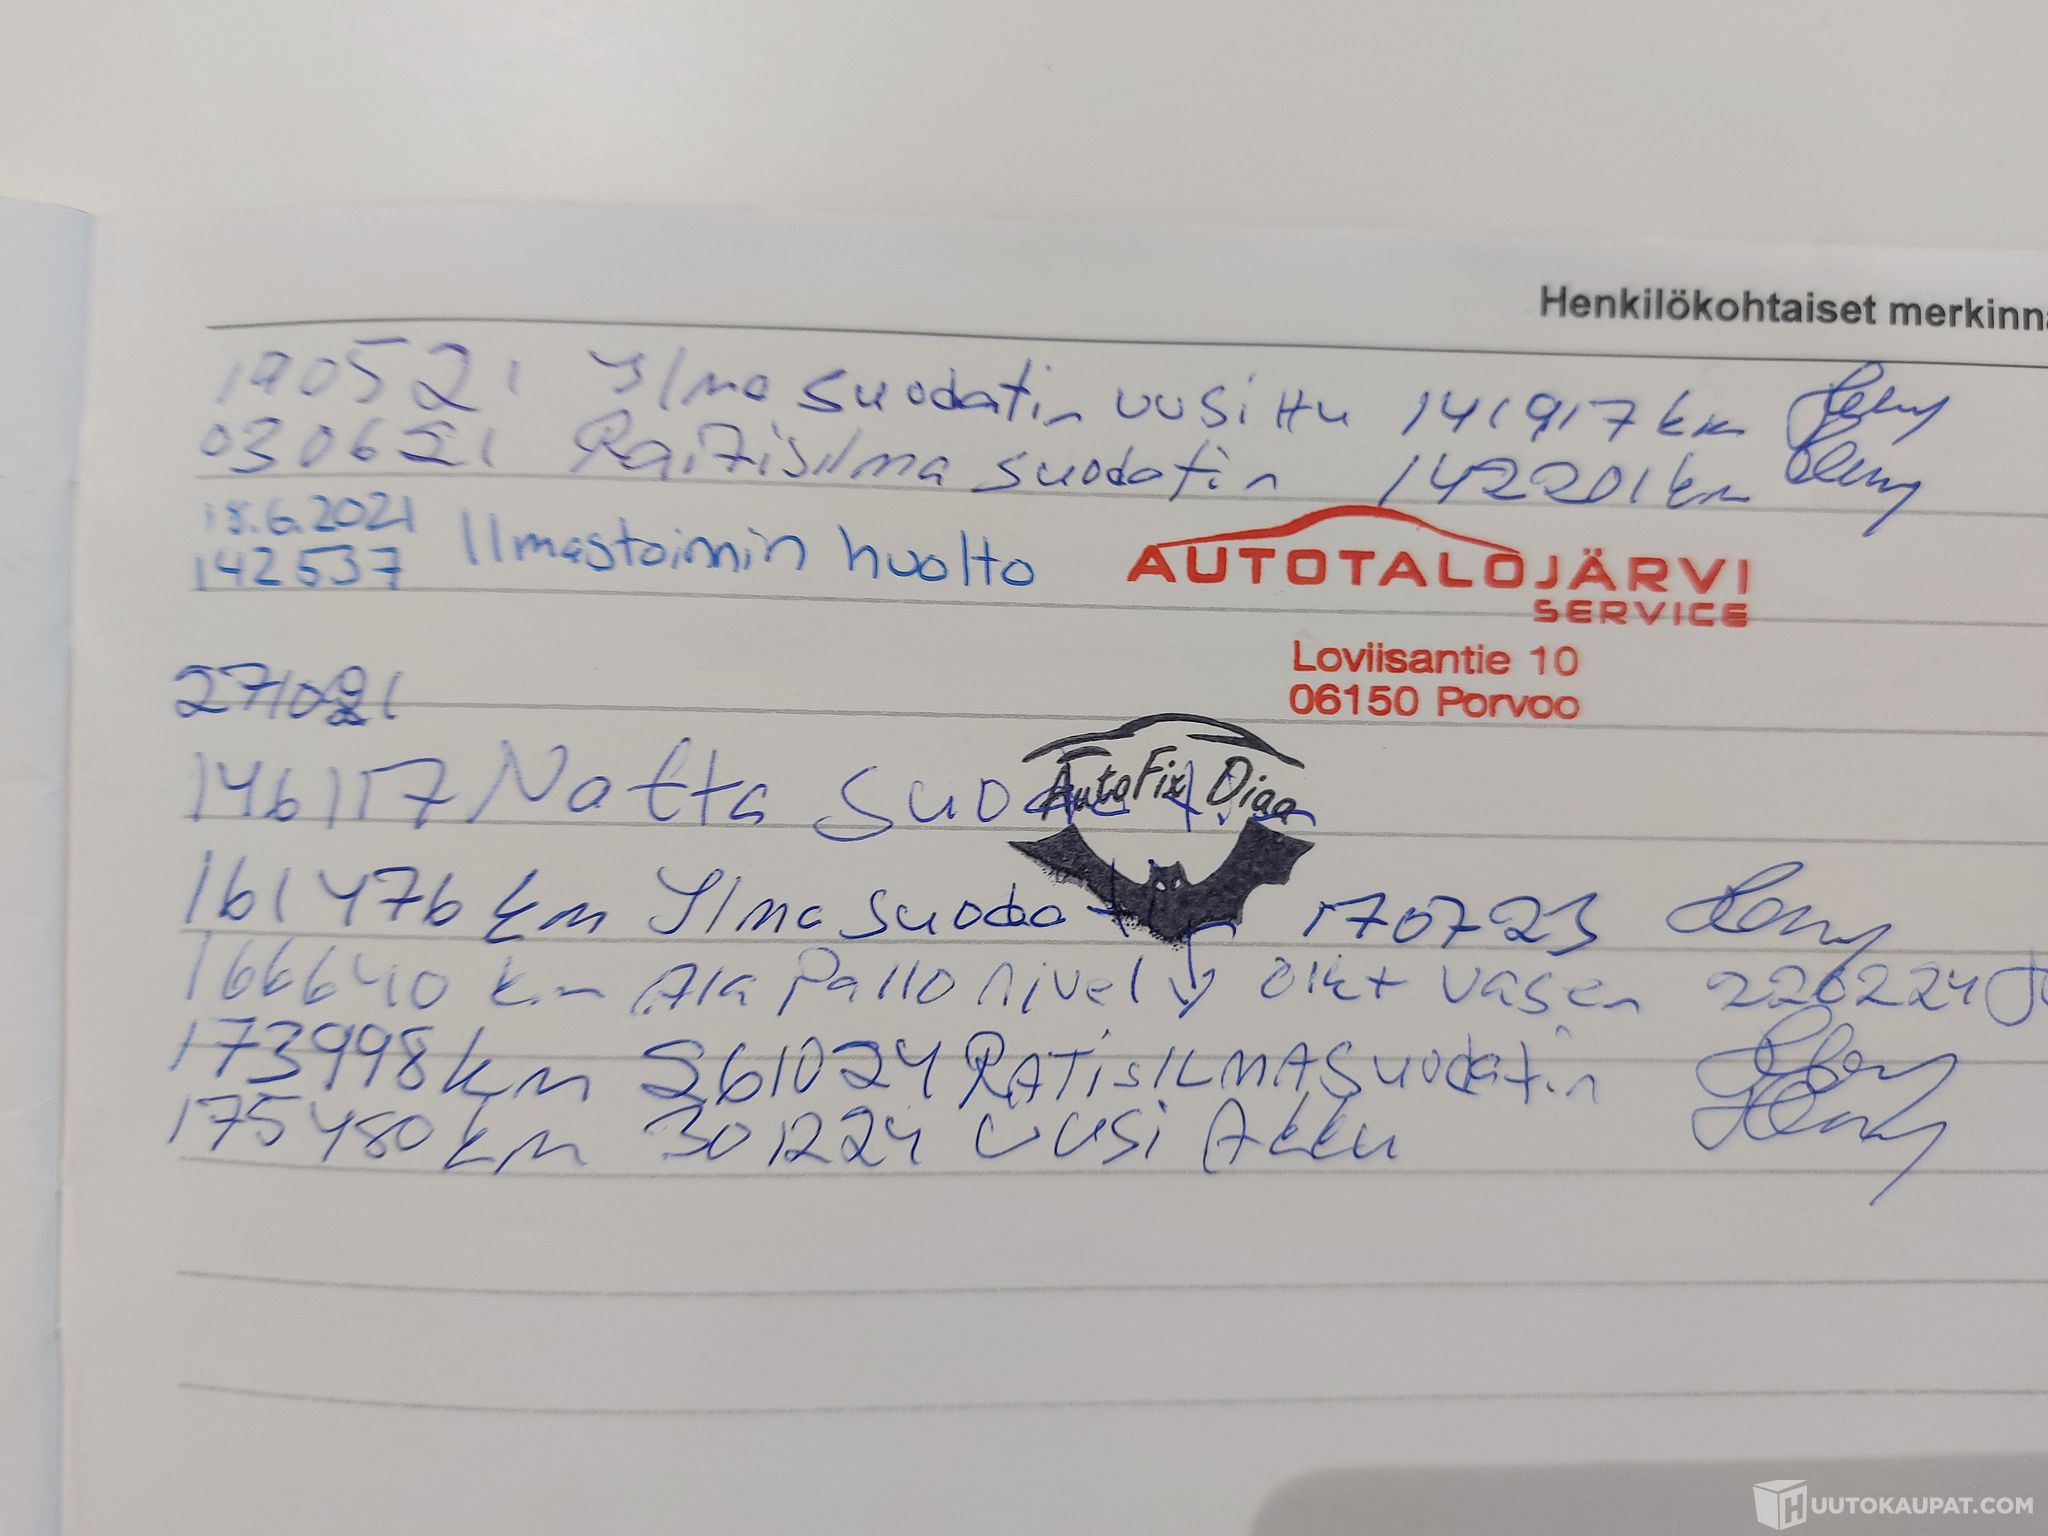 Henkilökohtaiset merkinnä
190521 Ilma suodatin uusittu 141917 km
030621 Raitisilma suodatin 142201 km
18.6.2021
142537 Ilmastoinnin huolto
AUTOTALOJÄRVI
SERVICE
Loviisantie 10
06150 Porvoo
271021
AutoFix Diag
146117 Natta suodatin
161476 km Ilma suodatin 170723
166640 km Ala Pallonivel oikt vasen 220224
173998 km 261024 RATisILMAsuodatin
175480 km 301224 UUSi Akku
HUUTOKAUPAT.COM